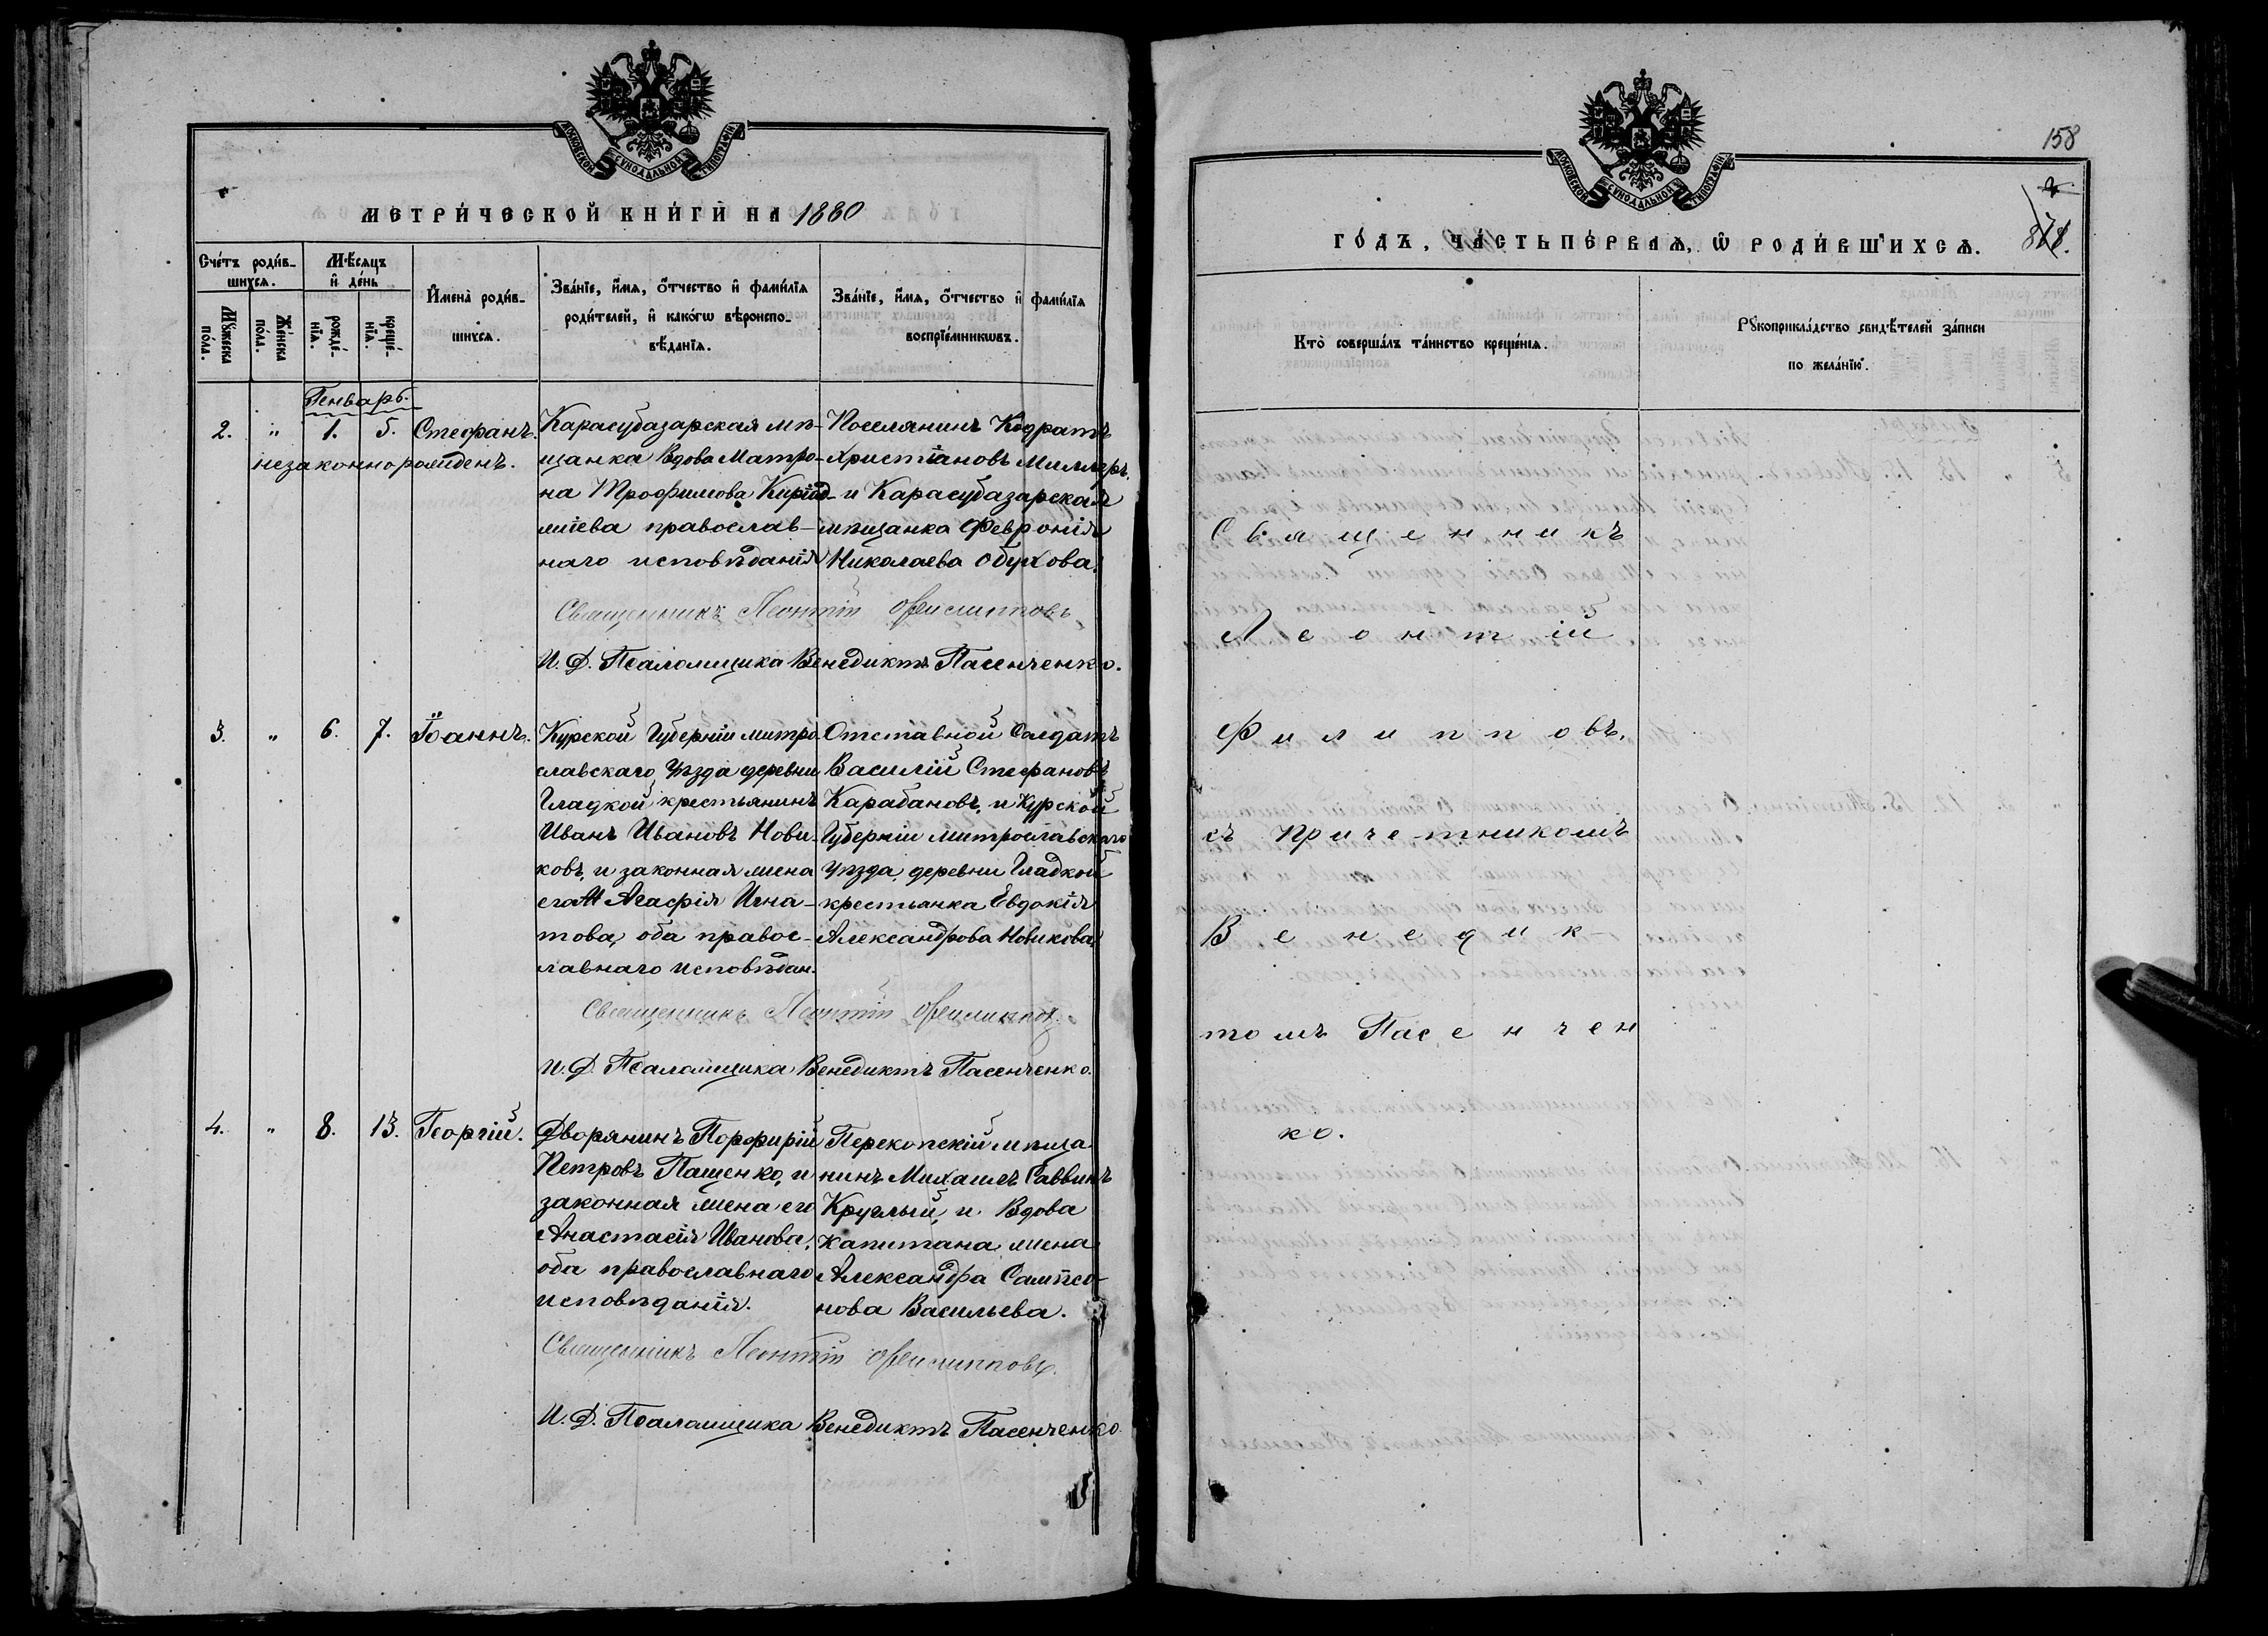 МОСКОВСКОЙ СѴНОДАЛЬНОЙ ТИПОГРАФІИ
МЕТРИ́ЧЕСКОЙ КНИ́ГИ НА 1880
Сче́тъ роди́в-
шихсѧ.
Мѣ́сяцъ
и҆ де́нь
Мꙋ́жеска
по́ла.
Же́нска
по́ла.
рожде́-
нїѧ.
креще́-
нїѧ.
И҆мена̀ роди́в-
шихсѧ.
Зва́нїе, и҆́мѧ, ѻ҆́тчество и҆ фами́лїѧ
роди́телей, и҆ како́гѡ вѣроиспо-
вѣ́данїѧ.
Зва́нїе, и҆́мѧ, ѻ҆́тчество и҆ фами́лїѧ
воспрїе́мникѡвъ.
Генварь.
2. " 1. 5. Стефанъ.
незаконнорожденъ.
Карасубазарская мѣ-
щанка Вдова Матро-
на Трофимова
православ-
наго исповѣданія
Поселянинъ Кодратъ
Христіановъ Миллеръ,
и Карасубазарская
мѣщанка Февронія
Николаева Обухова.
Священникъ Леонтій Филипповъ
И. Д. Псаломщика Венедиктъ Пасенченко.
3. " 6. 7. Іоаннъ.
Курской Губерніи митро
славскаго Уѣзда деревни
Гладкой крестьянинъ
Иванъ Ивановъ Нови-
ковъ, и законная жена
его Агафія Игна-
това, оба правос-
лавнаго исповѣдан.
Отставной Солдатъ
Василій Стефановъ
Карабановъ, и Курской
Губерніи митрославскаго
Уѣзда, деревни Гладкой
крестьянка Евдокія
Александрова Новикова.
Священникъ Леонтій Филипповъ.
И. Д. Псаломщика Венедиктъ Пасенченко.
4. " 8. 13. Георгій.
Дворянинъ Порфирій
Петровъ Пащенко, и
законная жена его
Анастасія Иванова,
оба православнаго
исповѣданія.
Перекопскій мѣща
нинъ Михаилъ Саввинъ
Круглый, и Вдова
капитана жена
Александра Сампсо-
нова Васильева.
Священникъ Леонтій Филипповъ.
И. Д. Псаломщика Венедиктъ Пасенченко
158
МОСКОВСКОЙ СѴНОДАЛЬНОЙ ТИПОГРАФІИ
ГО́ДЪ, ЧА́СТЬ ПЕ́РВАѦ, Ѽ РОДИ́ВШИХСѦ.
Кто̀ соверша́лъ та́инство креще́нїѧ.
Рꙋкоприкла́дство свидѣ́телей за́писи
по жела́нїю.
Священникъ
Леонтій
Филипповъ,
съ Причетникомъ
Венедик-
томъ Пасенчен
ко.